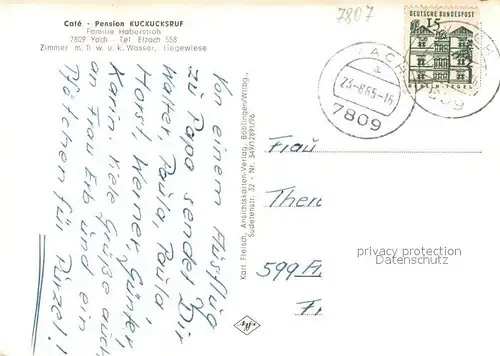 Café - Pension KUCKUCKSRUF
Familie Haberstroh
7809 Yach - Tel. Elzach 558
Zimmer m. fl. w. u. k. Wasser, Liegewiese
7807
DEUTSCHE BUNDESPOST
15
BERLIN-TEGEL
YACH
a
23-8.65-16
7809
Von einem Ausflug
zu Papa sendet Dir
Walter, Paula, Paula
Horst, Werner, Günter,
Karin. Viele Grüße auch
an Frau Erb und ein
Pfötchen für Pürzel!
Karl Fleisch, Ansichtskarten-Verlag, Böblingen/Wttbg.
Sudetenstr. 32 - Nr. 349/12891/76
Frau
599
privacy protection
Datenschutz